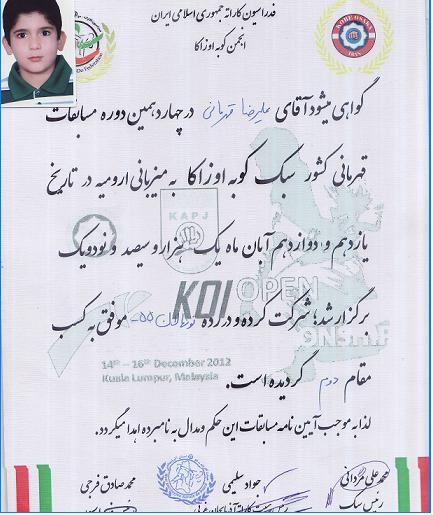 فدراسیون کاراته جمهوری اسلامی ایران
انجمن کوبه اوزاکا
KOBE OSAKA
Federation
گواهی میشود آقای علیرضا قهرمانی در چهاردهمین دوره مسابقات
قهرمانی کشور سبک کوبه اوزاکا به میزبانی ارومیه در تاریخ
یازدهم و دوازدهم آبان ماه یک هزار و سیصد و نود و یک
KAPJ
KOI OPEN
برگزار شد؛ شرکت کرده و در رده نونهالان -55 موفق به کسب
14th - 16th December 2012
Kuala Lumpur, Malaysia
مقام دوم گردیده است.
لذا به موجب آیین نامه مسابقات این حکم و مدال به نامبرده اهدا میگردد.
محمد علی مردانی جواد سلیمی محمد صادق فرجی
رئیس سبک کاراته آذربایجان غربی